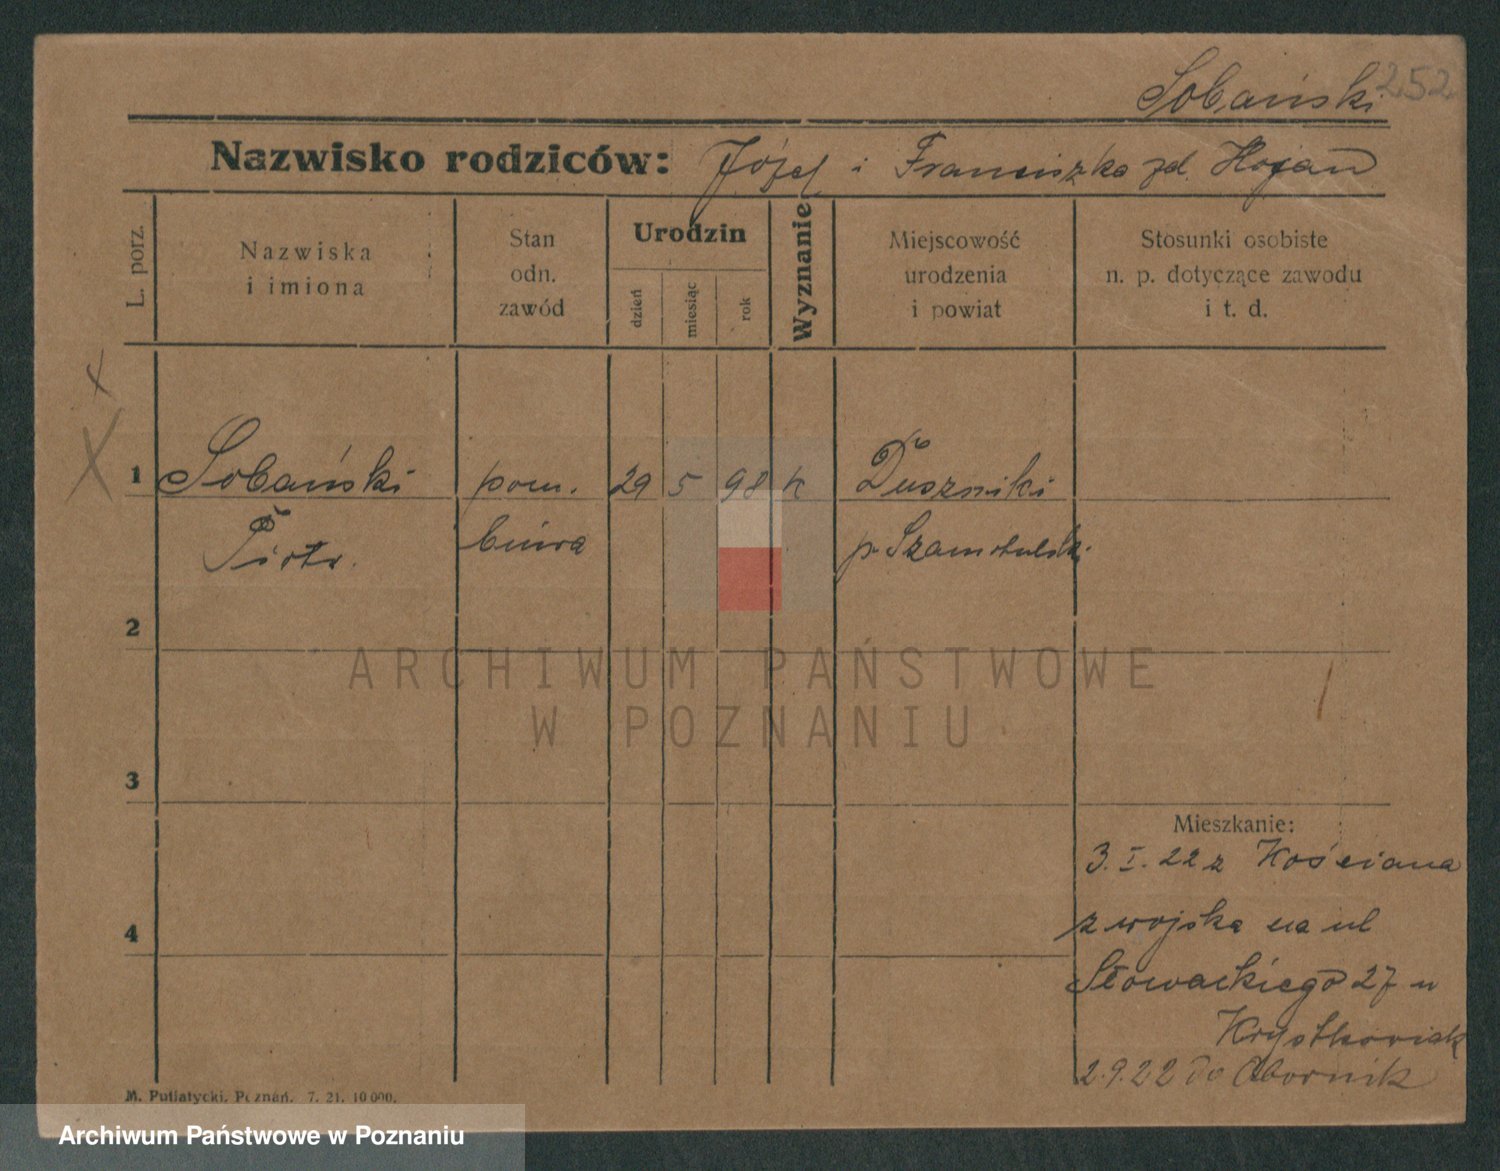 Sobański 252
Nazwisko rodziców: Józef i Franciszka zd. Hojan
L. porz.
Nazwiska
i imiona
Stan
odn.
zawód
Urodzin
dzień
miesiąc
rok
Wyznanie
Miejscowość
urodzenia
i powiat
Stosunki osobiste
n. p. dotyczące zawodu
i t. d.
1 Sobański pom. 29 5 98 k Duszniki
Piotr. biura p. Szamotulski.
2
ARCHIWUM PAŃSTWOWE
W POZNANIU
3
Mieszkanie:
3.I.22 z Kościana
4
z wojska na ul
Słowackiego 27 u
Krystkowiak
2.9.22 do Obornik
M. Putiatycki, Poznań. 7. 21. 10 000.
Archiwum Państwowe w Poznaniu